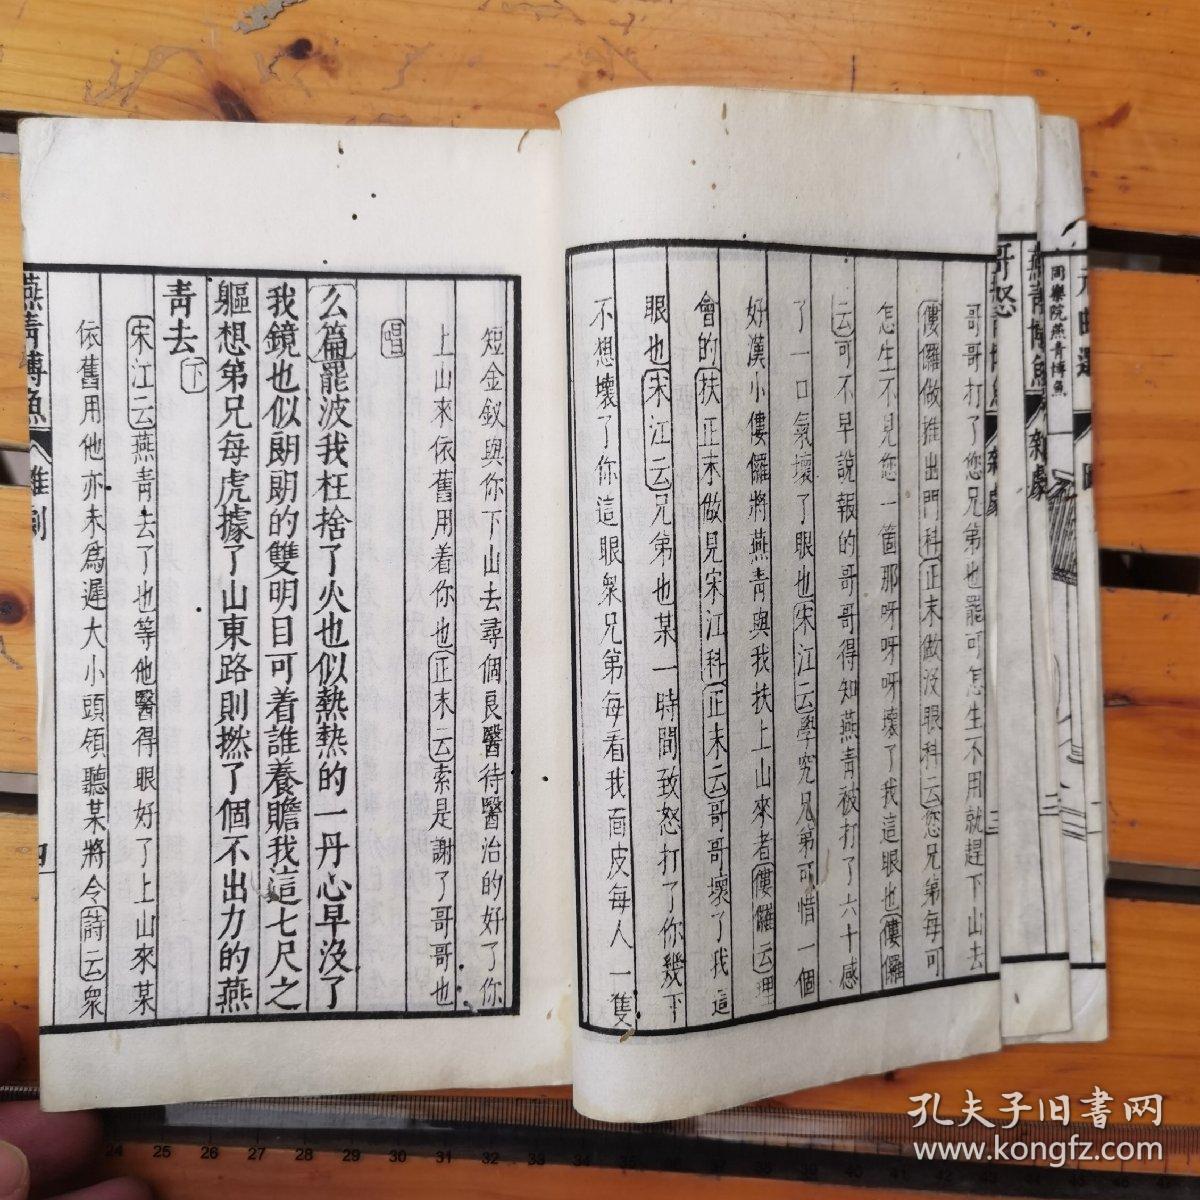 元曲選
同樂院燕青博魚
一
二
燕青博魚
雜劇
三
哥怒
雜劇
哥哥打了您兄弟也罷可怎生不用就趕下山去
僂儸做推出門科正末做沒眼科云您兄弟每可
怎生不見您一箇那呀呀呀壞了我這眼也僂儸
云可不早說報的哥哥得知燕青被打了六十感
了一口氣壞了眼也宋江云學究兄弟可惜一個
好漢小僂儸將燕青與我扶上山來者僂儸云理
會的扶正末做見宋江科正末云哥哥壞了我這
眼也宋江云兄弟也某一時間致怒打了你幾下
不想壞了你這眼衆兄弟每看我面皮每人一隻
短金釵與你下山去尋個良醫待醫治的好了你
上山來依舊用着你也正末云索是謝了哥哥也
唱
么篇罷波我枉捨了火也似熱熱的一丹心早沒了
我鏡也似朗朗的雙明目可着誰養贍我這七尺之
軀想弟兄每虎據了山東路則撚了個不出力的燕
青去下
宋江云燕青去了也等他醫得眼好了上山來某
依舊用他亦未爲遲大小頭領聽某將令詩云衆
燕青博魚
雜劇
四
孔夫子旧書网
www.kongfz.com